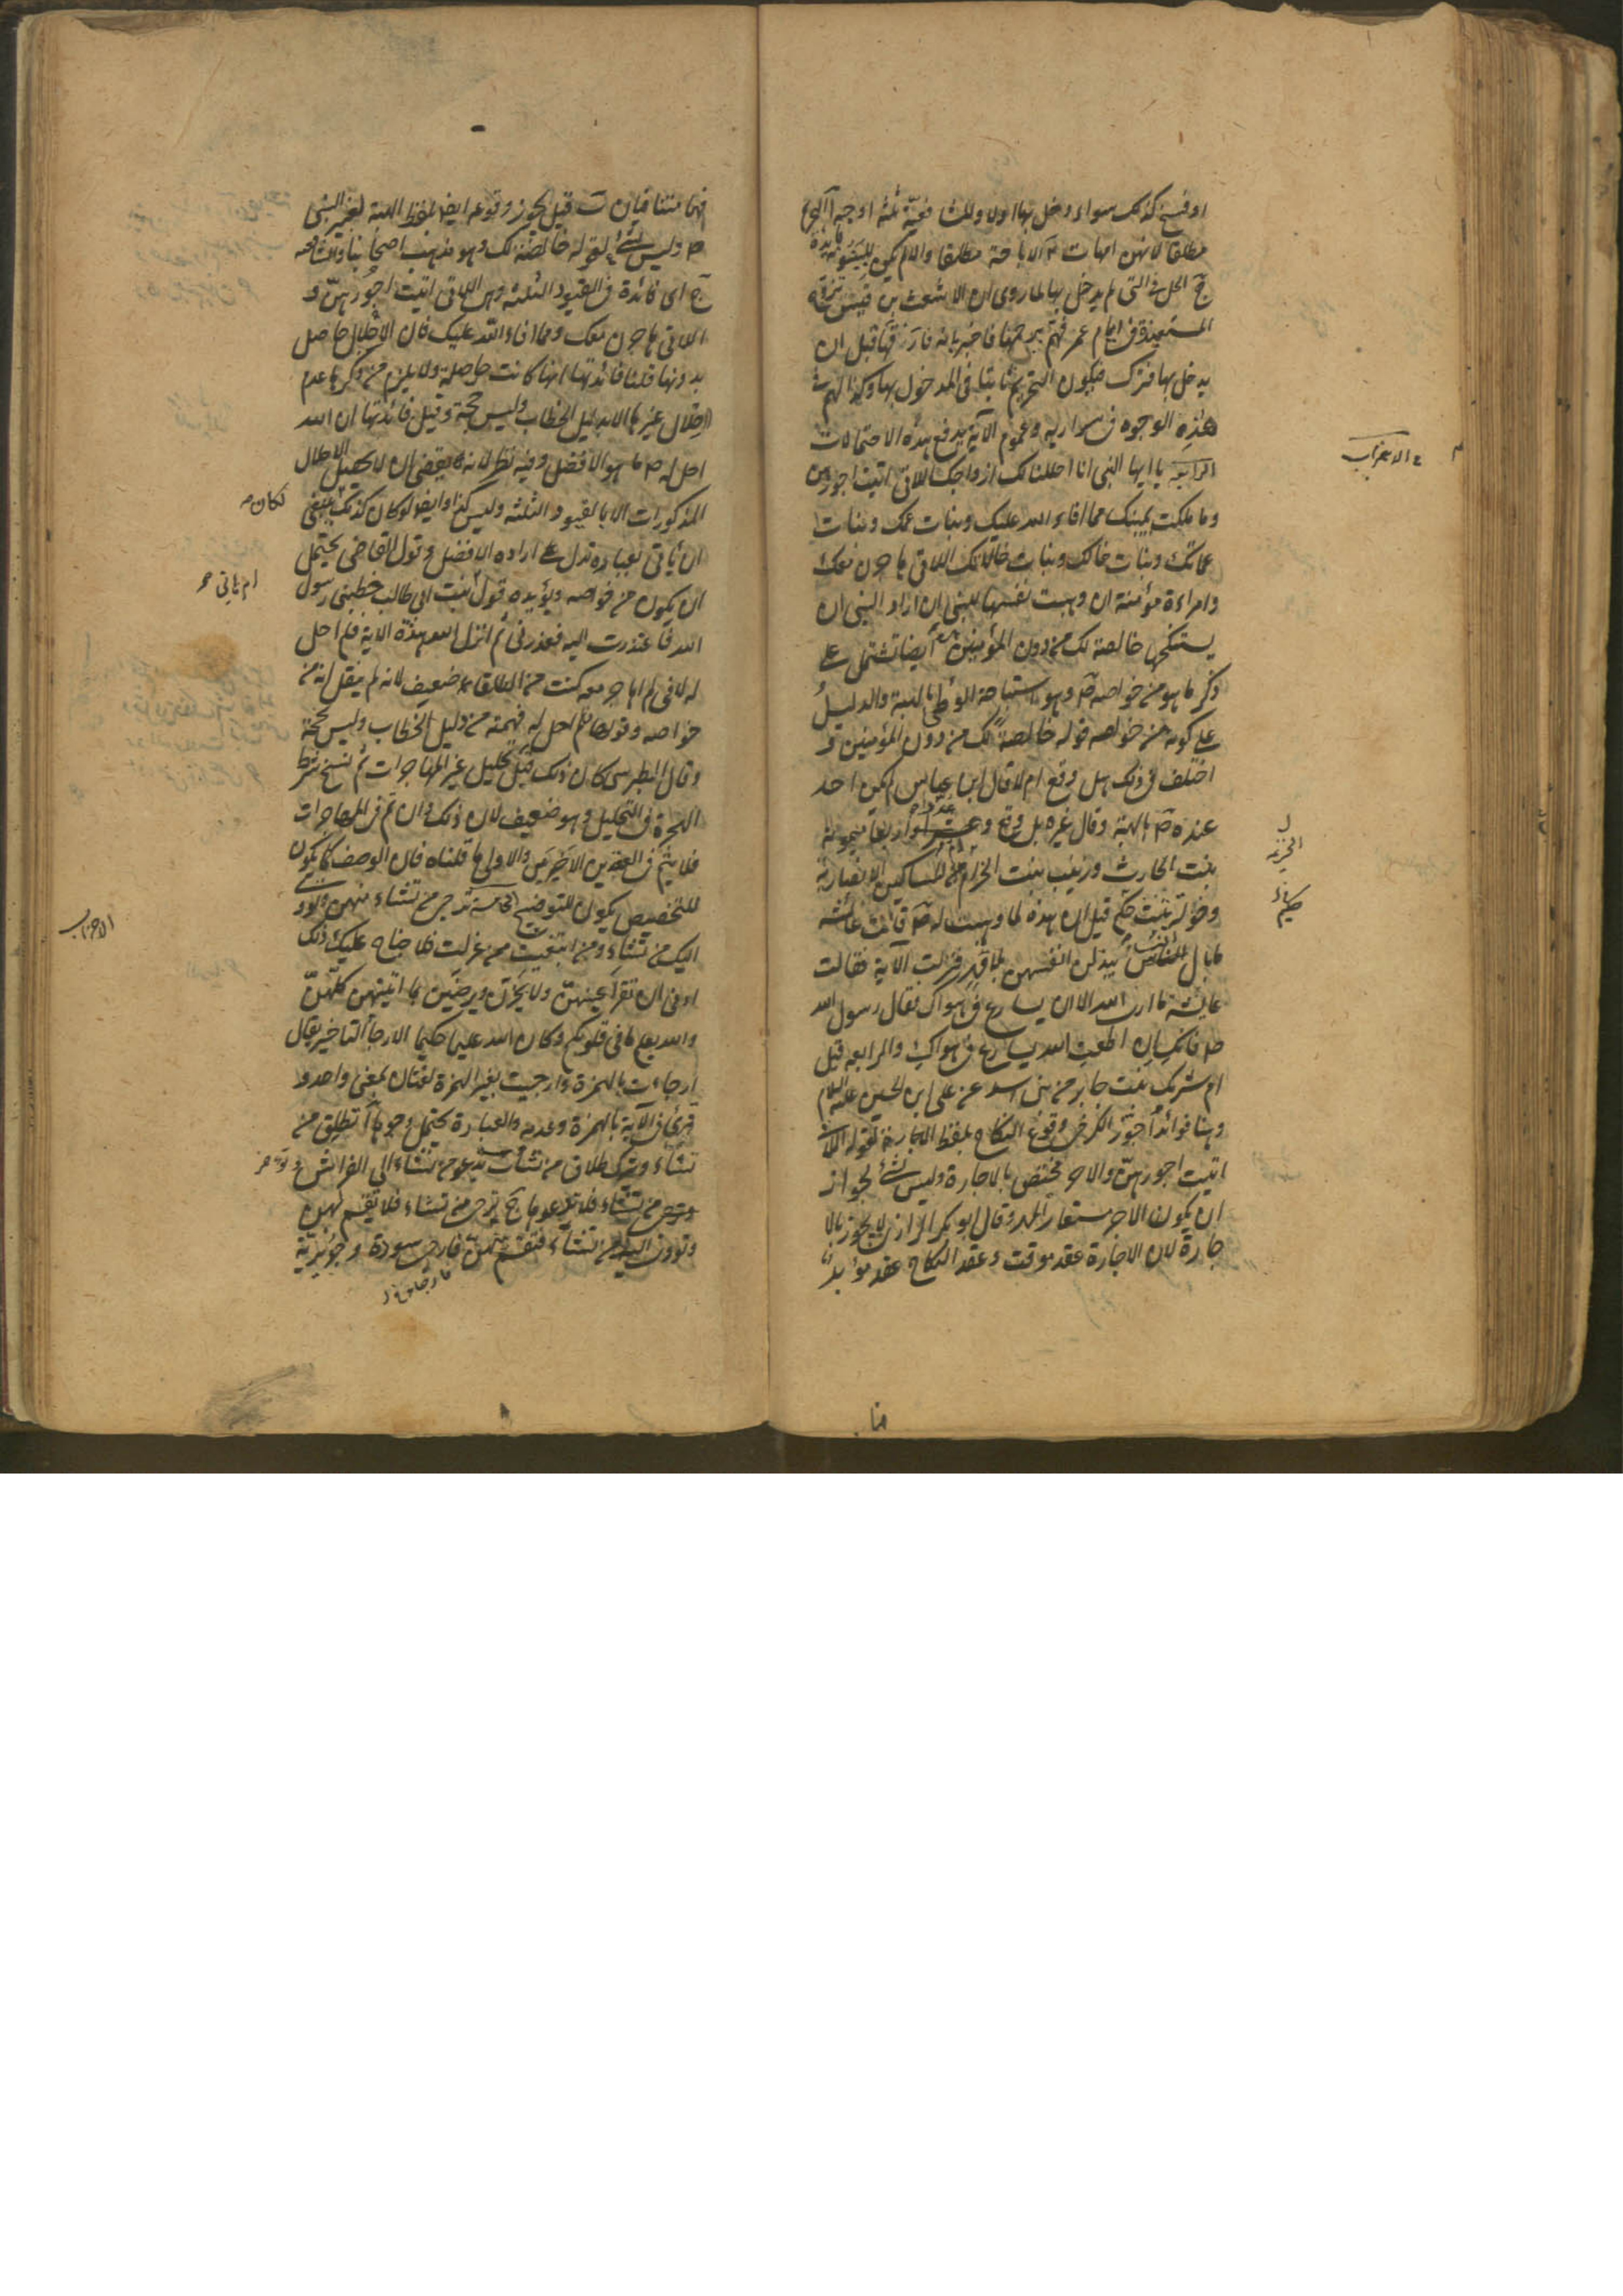 او فسخ كذلك سواء دخل بها اولا وللشافعية ثلثة اوجه آ التحريم
مطلقا لانهن امهات ب الاباحة مطلقا والا لم يكن للبينونة فايدة
ج الحل في التي لم يدخل بها لما روى ان الاشعث بن قيس تزوج
المستعيذة في ايام عمر فهم برجمها فاخبر بانه فارقها قبل ان
يدخل بها فترك فيكون التحريم ثابتا في المدخول بها وكذا لهم في
هذه الوجوه في سراريه وعموم الآية يدفع هذه الاحتمالات
الرابعة يا ايها النبي انا احللنا لك ازواجك اللاتي اتيت اجورهن
وما ملكت يمينك مما افاء الله عليك وبنات عمك وبنات
عماتك وبنات خالك وبنات خالاتك اللاتي هاجرن معك
وامراءة مؤمنة ان وهبت نفسها للنبي ان اراد النبي ان
يستنكحها خالصة لك من دون المؤمنين ايضا تشتمل على
ذكر ما هو من خواصه ص وهو استباحة الوطي بالهبة والدليل
على كونه من خواصه قوله خالصة لك من دون المؤمنين و
اختلف في ذلك هل وقع ام لا قال ابن عباس لم يكن احد
عنده ص بالهبة وقال غيره بل وقع وعدوا اربعا ميمونة
بنت الحارث وزينب بنت الخزيمة ام المساكين الانصارية
وخولة بنت حكيم قيل ان هذه لما وهبت له ص قالت عائشة
ما بال النساء يبذلن انفسهن بلا قدر فنزلت الآية فقالت
عايشة ما ارى الله الا ان يسارع في هواك فقال رسول الله
ص فانك ان اطعت الله يسارع في هواك والرابعة قيل
ام شريك بنت جابر من بني اسد عن علي ابن الحسين عليه السلام
وهنا فوائد آ جوز الكرخي وقوع النكاح بلفظ الاجارة لقوله اللاتي
اتيت اجورهن والاجر مختص بالاجارة وليس بشئ لجواز
ان يكون الاجر مستعار للمهر وقال ابو بكر الرازي لا يجوز بالا
جارة لان الاجارة عقد موقت وعقد النكاح عقد مؤبد
ع الاحزاب
الخزيمة
حكيم
فهما متنافيان ب قيل يجوز وقوعه ايضا بلفظ الهبة لغير النبي
ص وليس بشئ لقوله خالصة لك وهو مذهب اصحابنا والشافعي
ج اى فائدة في القيود الثلثة وهي اللاتي اتيت اجورهن و
اللاتي هاجرن معك ومما افاء الله عليك فان الاحلال حاصل
بدونها قلنا فائدتها انها كانت حاصلة ولا يلزم من ذكرها عدم
احلال غيرها الا بدليل الخطاب وليس حجة وقيل فائدتها ان الله
احل له ص ما هو الافضل وفيه نظر لانه يقتضي ان لا يحصل الاحلال
المذكورات الا بالقيود الثلثة وليس كذا وايضا لو كان كذلك ينبغي
ان يأتي بعبارة تدل على ارادة الافضل وقول القاضي يحتمل
ان يكون من خواصه ويؤيده قول بنت ابي طالب خطبني رسول
الله فاعتذرت اليه فعذرني ثم انزل الله هذه الاية فلم احل
له لاني لم اهاجر معه كنت من الطلقاء ضعيف لانه لم ينقل انه من
خواصه وقولها لم احل له فهمته من دليل الخطاب وليس بحجة
وقال الطبرسي كان ذلك قبل تحليل غير المهاجرات ثم نسخ شرط
الهجرة في التحليل وهو ضعيف لان ذلك وان تم في المهاجرات
فلا يتم في القيدين الاخيرين والاولى ما قلناه فان الوصف كما يكون
للتخصيص يكون للتوضيح الخامسة ترجي من تشاء منهن وتؤوي
اليك من تشاء ومن ابتغيت ممن عزلت فلا جناح عليك ذلك
ادنى ان تقر اعينهن ولا يحزن ويرضين بما اتيتهن كلهن
والله يعلم ما في قلوبكم وكان الله عليما حكيما الارجا التاخير يقال
ارجاءت بالهمزة وارجيت بغير الهمزة لغتان بمعنى واحد و
قرئ في الآية بالهمزة وعدمه والعبارة يحتمل وجوها آ تطلق من
تشاء وتترك طلاق من تشاء ب تدعو من تشاء الى الفراش و
وترجي من تشاء فلا تدعوها ج ترجي من تشاء فلا تقسم لهن
وتؤوي اليك من تشاء فتقسم لهن فارجى سودة وجويرية
لكان
ام هاني
الاحزاب